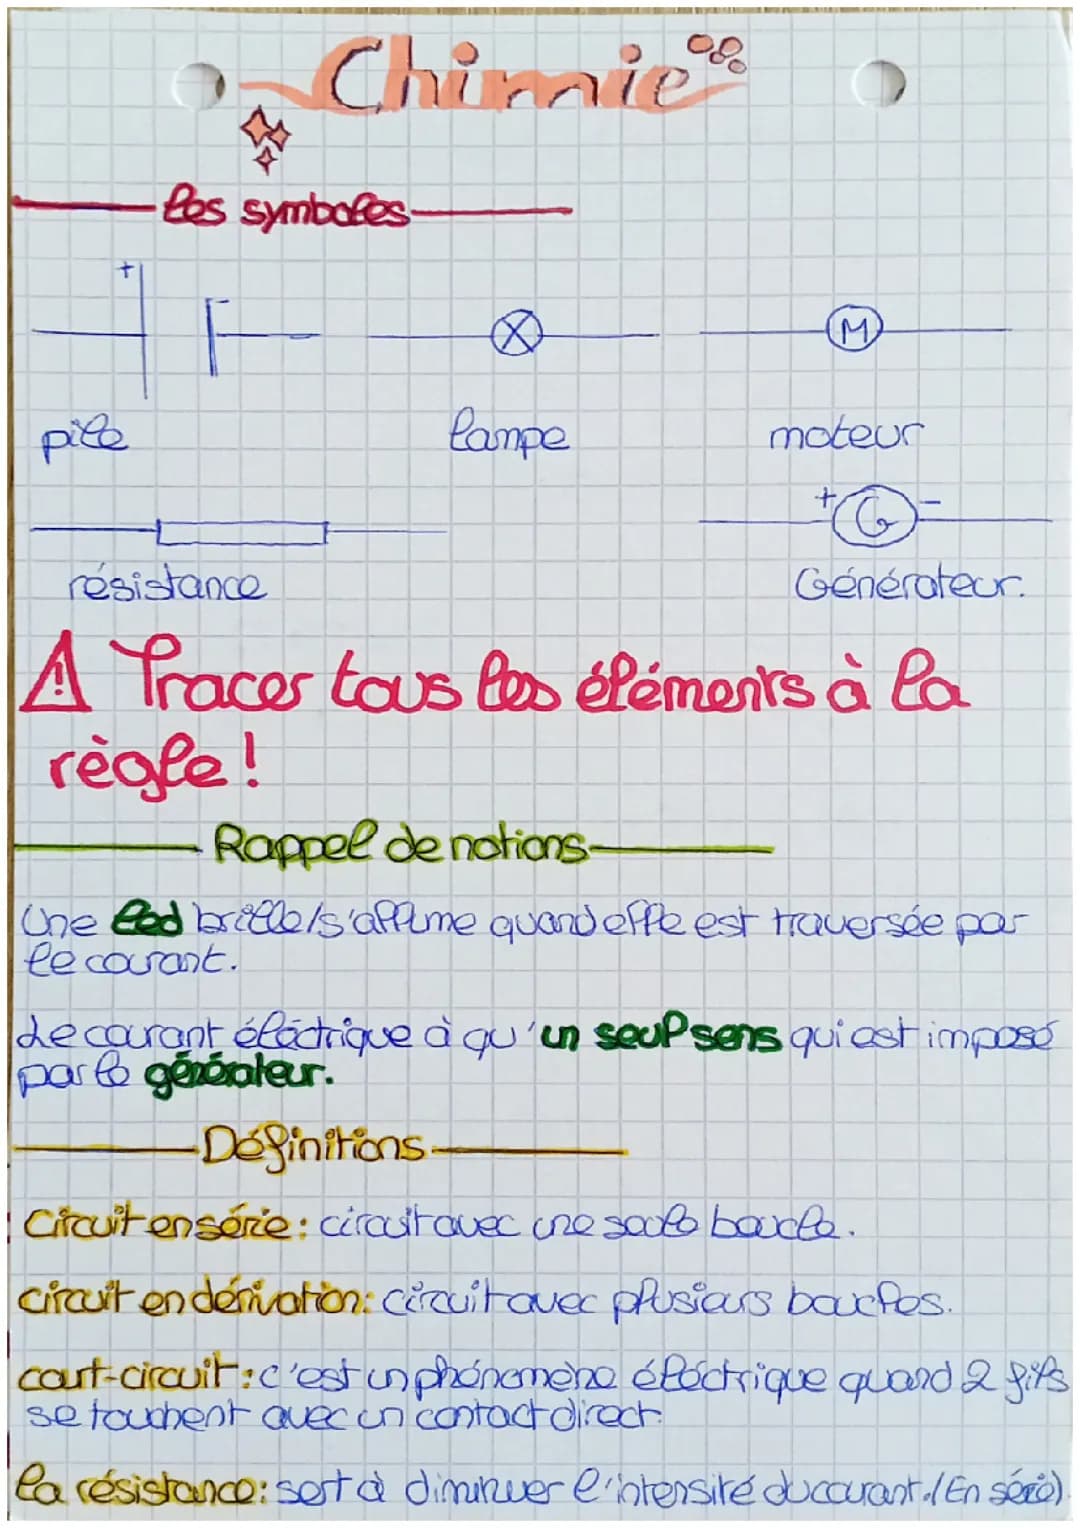 Chimie
les symboles
+
M
pile lampe moteur
+ G -
résistance Générateur.
! Tracer tous les éléments à la
règle !
Rappel de notions
Une led brille/s'allume quand elle est traversée par
le courant.
Le courant éléctrique à qu'un seul sens qui est imposé
par le générateur.
Définitions
Circuit en série : circuit avec une seule boucle.
circuit en dérivation : circuit avec plusieurs boucles.
court-circuit : c'est un phénomène éléctrique quand 2 fils
se touchent avec un contact direct.
la résistance : sert à diminuer l'intensité du courant. (En série)